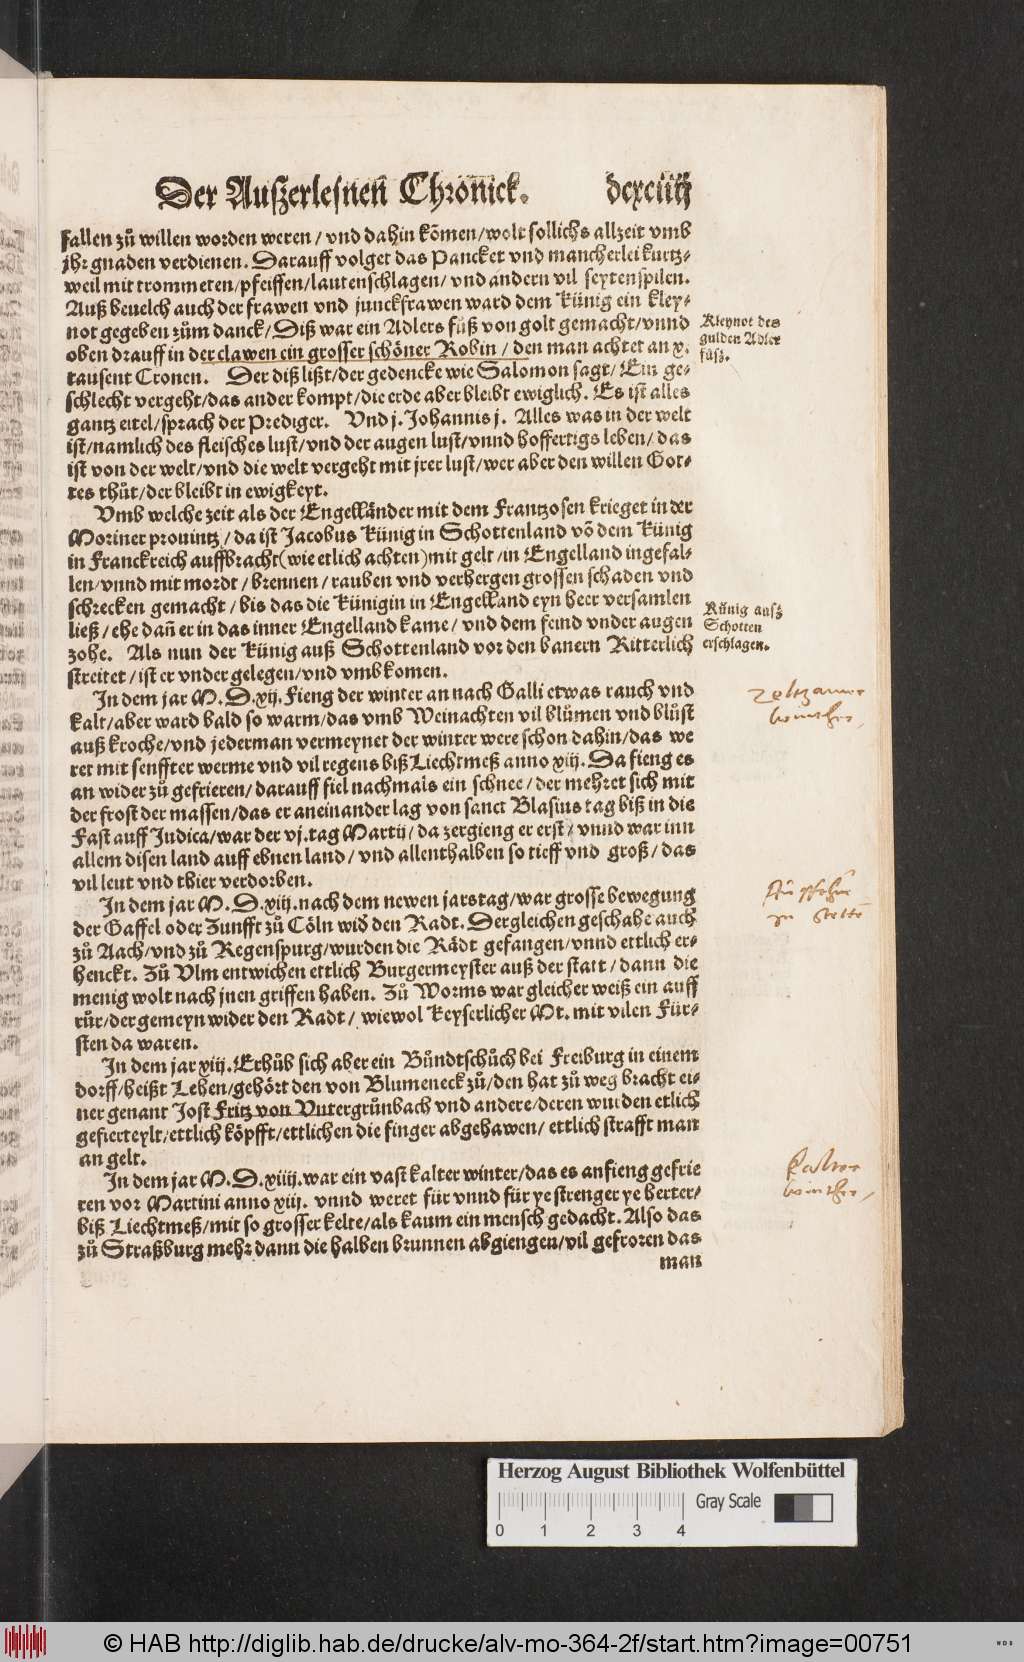 Der Außerlesnen̄ Chron̄ick.
fallen zů willen worden weren / vnd dahin kōmen / wolt sollichs allzeit vmb
jhr gnaden verdienen. Darauff volget das Pancket vnd mancherlei kurtz⸗
weil mit trommeten / pfeiffen / lautenschlagen / vnd andern vil seytenspilen.
Auß beuelch auch der frawen vnd junckfrawen ward dem Künig ein kley⸗
not gegeben zům danck / Diß war ein Adlers fůß von golt gemacht / vnnd
oben drauff in der clawen ein grosser schöner Robin / den man achtet an x.
tausent Cronen. Der diß lißt / der gedencke wie Salomon sagt / Ein ge⸗
schlecht vergeht / das ander kompt / die erde aber bleibt ewiglich. Es ist alles
gantz eitel / sprach der Prediger. Vnd j. Johannis j. Alles was in der welt
ist / namlich des fleisches lust / vnd der augen lust / vnnd hoffertigs leben / das
ist von der welt / vnd die welt vergeht mit jrer lust / wer aber den willen Got⸗
tes thůt / der bleibt in ewigkeyt.
Kleynot des
gulden Adler
fůß.
Vmb welche zeit als der Engelländer mit dem Frantzosen krieget in der
Moriner prouintz / da ist Jacobus Künig in Schottenland vō dem Künig
in Franckreich auffbracht (wie etlich achten) mit gelt / in Engelland ingefal⸗
len / vnnd mit mordt / brennen / rauben vnd verhergen grossen schaden vnd
schrecken gemacht / bis das die Künigin in Engelland eyn heer versamlen
ließ / ehe dan̄ er in das inner Engelland kame / vnd dem feind vnder augen
zohe. Als nun der Künig auß Schottenland vor den banern Ritterlich
streitet / ist er vnder gelegen / vnd vmbkomen.
Künig auß
Schotten
erschlagen.
In dem jar M.D.xij. fieng der winter an nach Galli etwas rauch vnd
kalt / aber ward bald so warm / das vmb Weinachten vil blůmen vnd blůst
auß kroche / vnd jederman vermeynet der winter were schon dahin / das we
ret mit senffter werme vnd vil regens biß Liechtmeß anno xiij. Da fieng es
an wider zů gefrieren / darauff fiel nachmals ein schnee / der mehret sich mit
der frost der massen / das er aneinander lag von sanct Blasius tag biß in die
Fast auff Judica / war der vj. tag Martij / da zergieng er erst / vnnd war inn
allem disen land auff ebnen land / vnd allenthalben so tieff vnd groß / das
vil leut vnd thier verdorben.
winther
In dem jar M.D.xiij. nach dem newen jarstag / war grosse bewegung
der Gaffel oder Zunfft zů Cöln wid̄ den Radt. Dergleichen geschahe auch
zů Aach / vnd zů Regenspurg / wurden die Rädt gefangen / vnnd ettlich er⸗
henckt. Zů Vlm entwichen ettlich Burgermeyster auß der statt / dann die
menig wolt nach jnen griffen haben. Zů Worms war gleicher weiß ein auff
růr / der gemeyn wider den Radt / wiewol Keyserlicher Mt. mit vilen Für⸗
sten da waren.
In dem jar xiij. Erhůb sich aber ein Bůndtschůch bei Freiburg in einem
dorff / heißt Leben / gehört den von Blumeneck zů / den hat zů weg bracht ei⸗
ner genant Jost Fritz von Vntergrůnbach vnd andere / deren wurden etlich
gefierteylt / ettlich köpfft / ettlichen die finger abgehawen / ettlich strafft man
an gelt.
In dem jar M.D.xiiij. war ein vast kalter winter / das es anfieng gefrie
ren vor Martini anno xiij. vnnd weret für vnnd für ye strenger ye herter /
biß Liechtmeß / mit so grosser kelte / als kaum ein mensch gedacht. Also das
zů Straßburg mehr dann die halben brunnen abgiengen / vil gefroren das
man
Kalter
winther
Herzog August Bibliothek Wolfenbüttel
Gray Scale
0 1 2 3 4
© HAB http://diglib.hab.de/drucke/alv-mo-364-2f/start.htm?image=00751